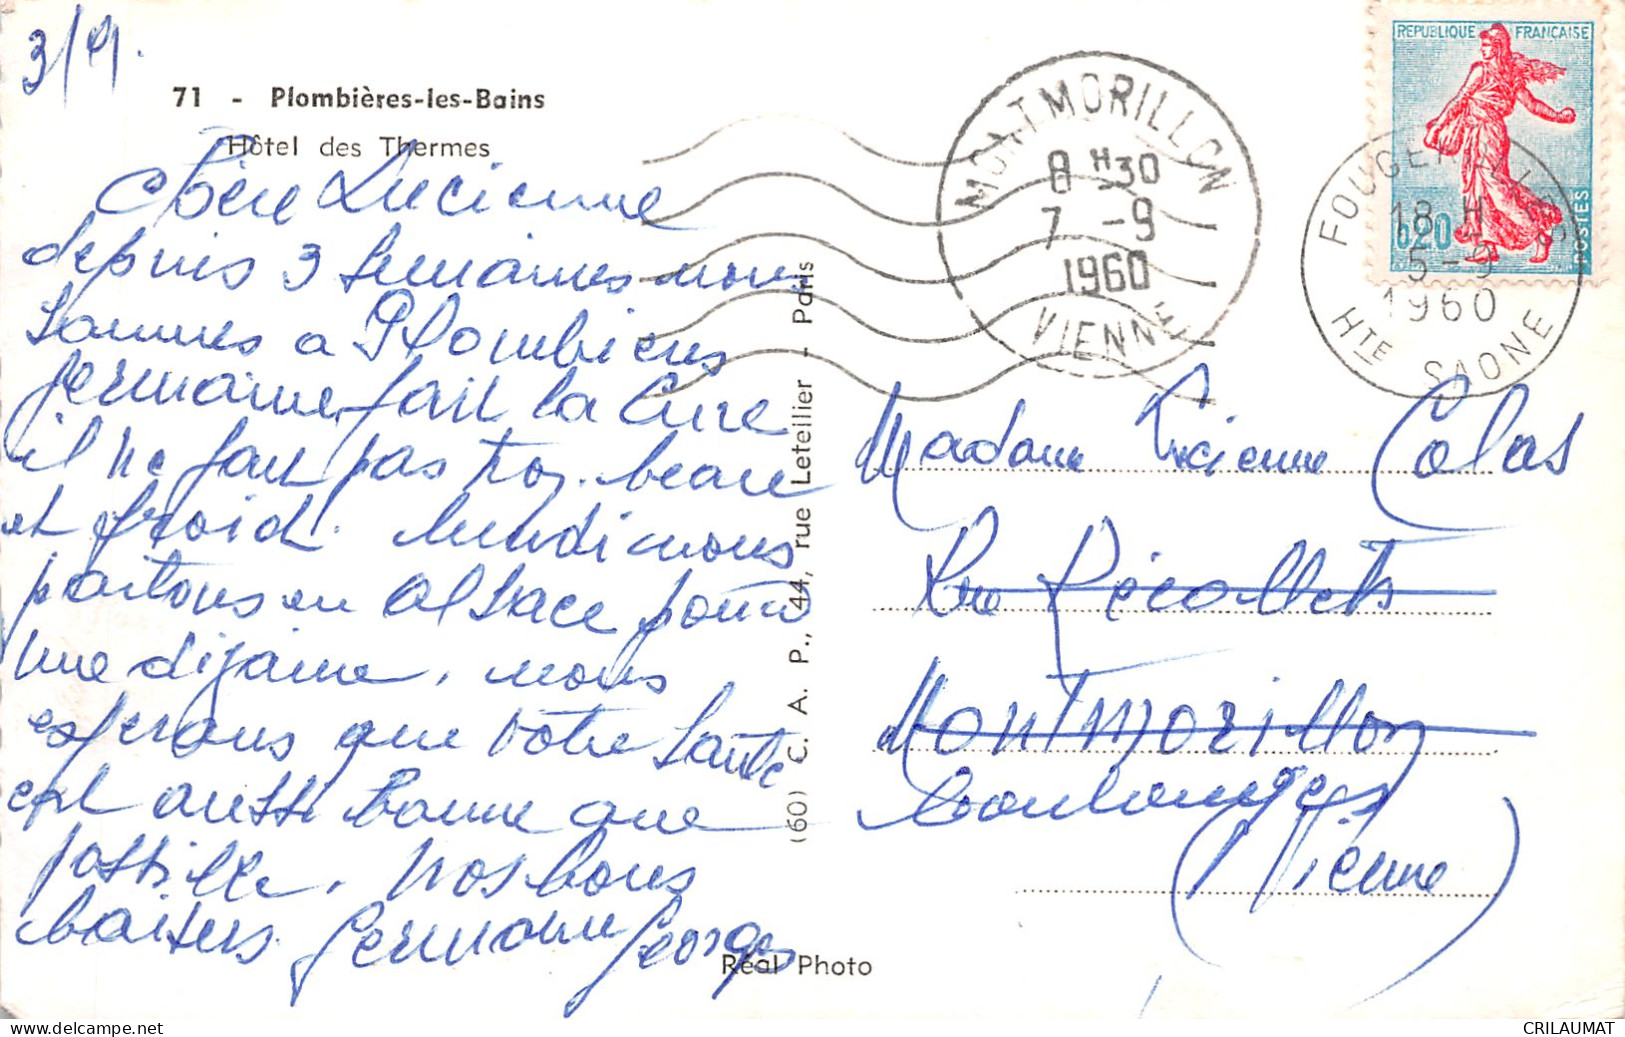 3/9.
71 - Plombières-les-Bains
Hôtel des Thermes
Chère Lucienne
depuis 3 semaines nous
sommes a Plombieres
germaine fait la Cure
il ne fait pas trop beau
et froid. lundi nous
partons en Alsace pour
une dizaine. nous
esperons que votre Santé
est aussi bonne que
possible. Nos bons
baisers Germaine Georges
(60) C. A. P., 44, rue Letellier - Paris
Réal Photo
MONTMORILLON
8 H30
7 -9
1960
VIENNE
REPUBLIQUE FRANÇAISE
0,20
POSTES
18 H
5-9
1960
HTE SAONE
Madame Lucienne Colas
Rue Récollets
Montmorillon
(Vienne)
CRILAUMAT
www.delcampe.net